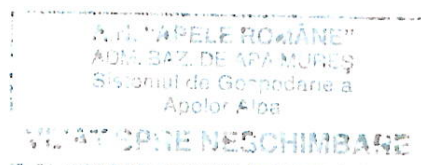 A.N. "APELE ROMÂNE"
ADM. BAZ. DE APĂ MUREȘ
Sistemul de Gospodărie a
Apelor Alba
VIZAT SPRE NESCHIMBARE